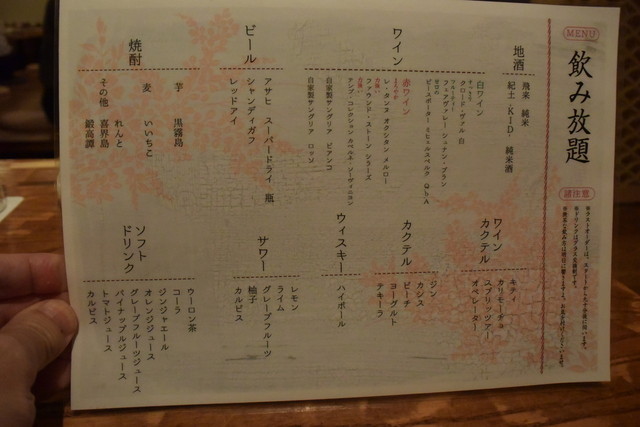 MENU
飲み放題
諸注意
地酒
飛来 純米
紀土 -KID- 純米酒
ワイン
白ワイン
クロード・ヴァル 白
フェアヴァレー シュナン・ブラン
赤ワイン
レ・タンヌ オクシタン メルロー
ファウンド・ストーン シラーズ
自家製サングリア ビアンコ
自家製サングリア ロッソ
ビール
アサヒ スーパードライ 瓶
シャンディガフ
レッドアイ
焼酎
芋 黒霧島
麦 いいちこ
その他 れんと
喜界島
鍛高譚
ワイン
カクテル
キティ
カリモーチョ
スプリッツァー
オペレーター
カクテル
ジン
カシス
ピーチ
ヨーグルト
テキーラ
ウィスキー
ハイボール
サワー
レモン
ライム
グレープフルーツ
柚子
カルピス
ソフト
ドリンク
ウーロン茶
コーラ
ジンジャエール
オレンジジュース
グレープフルーツジュース
パイナップルジュース
トマトジュース
カルピス